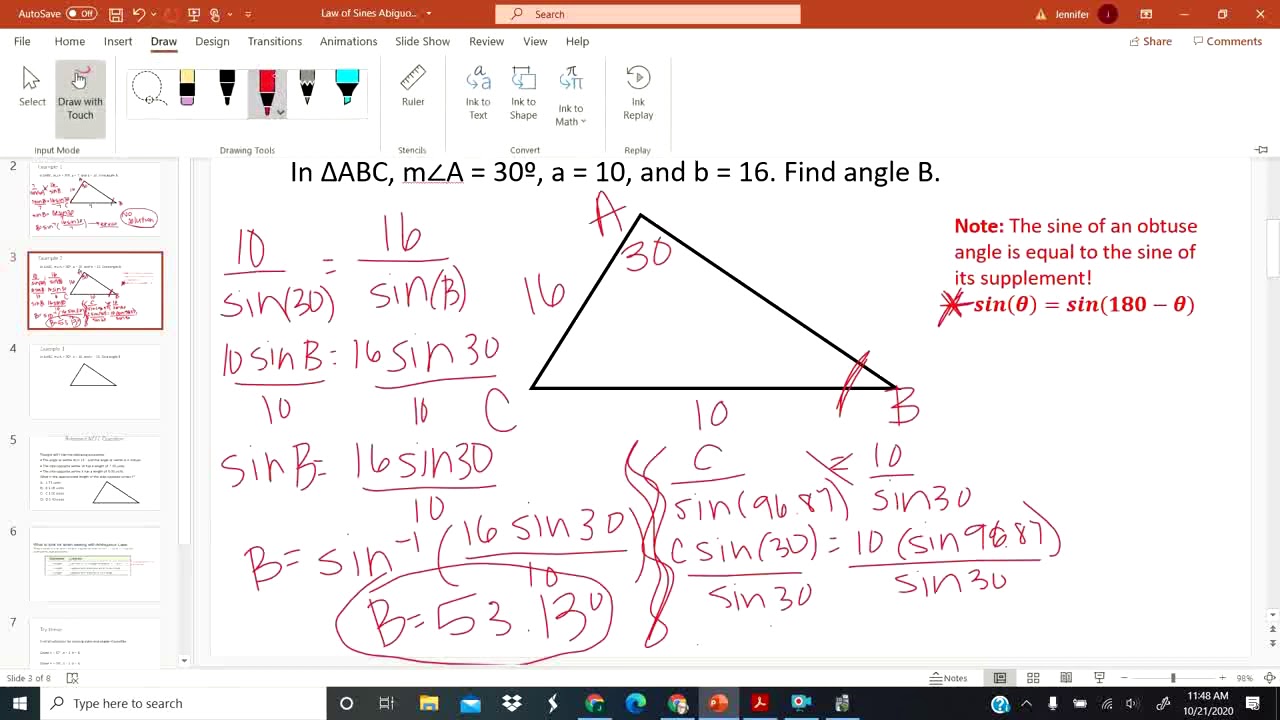 AutoSave Off
Law of Sines Abiguo...
Search
Jennifer
J
File Home Insert Draw Design Transitions Animations Slide Show Review View Help
Share Comments
Select
Draw with Touch
Ruler
Ink to Text
Ink to Shape
Ink to Math
Ink Replay
Input Mode
Drawing Tools
Stencils
Convert
Replay
2
3
4
5
6
7
In ΔABC, m∠A = 30º, a = 10, and b = 16. Find angle B.
Note: The sine of an obtuse
angle is equal to the sine of
its supplement!
sin(θ) = sin(180 − θ)
A
30
16
10
C
B
10 = 16
sin(30) sin(B)
10 sin B = 16 sin 30
10 10
sin B = 16 sin 30
10
B = sin⁻¹ (16 sin 30)
10
B = 53.13°
C = 10
sin(96.87) sin 30
C sin(30) = 10 (sin 96.87)
sin 30 sin 30
Slide 3 of 8
Notes
98%
Type here to search
11:48 AM
10/21/2020